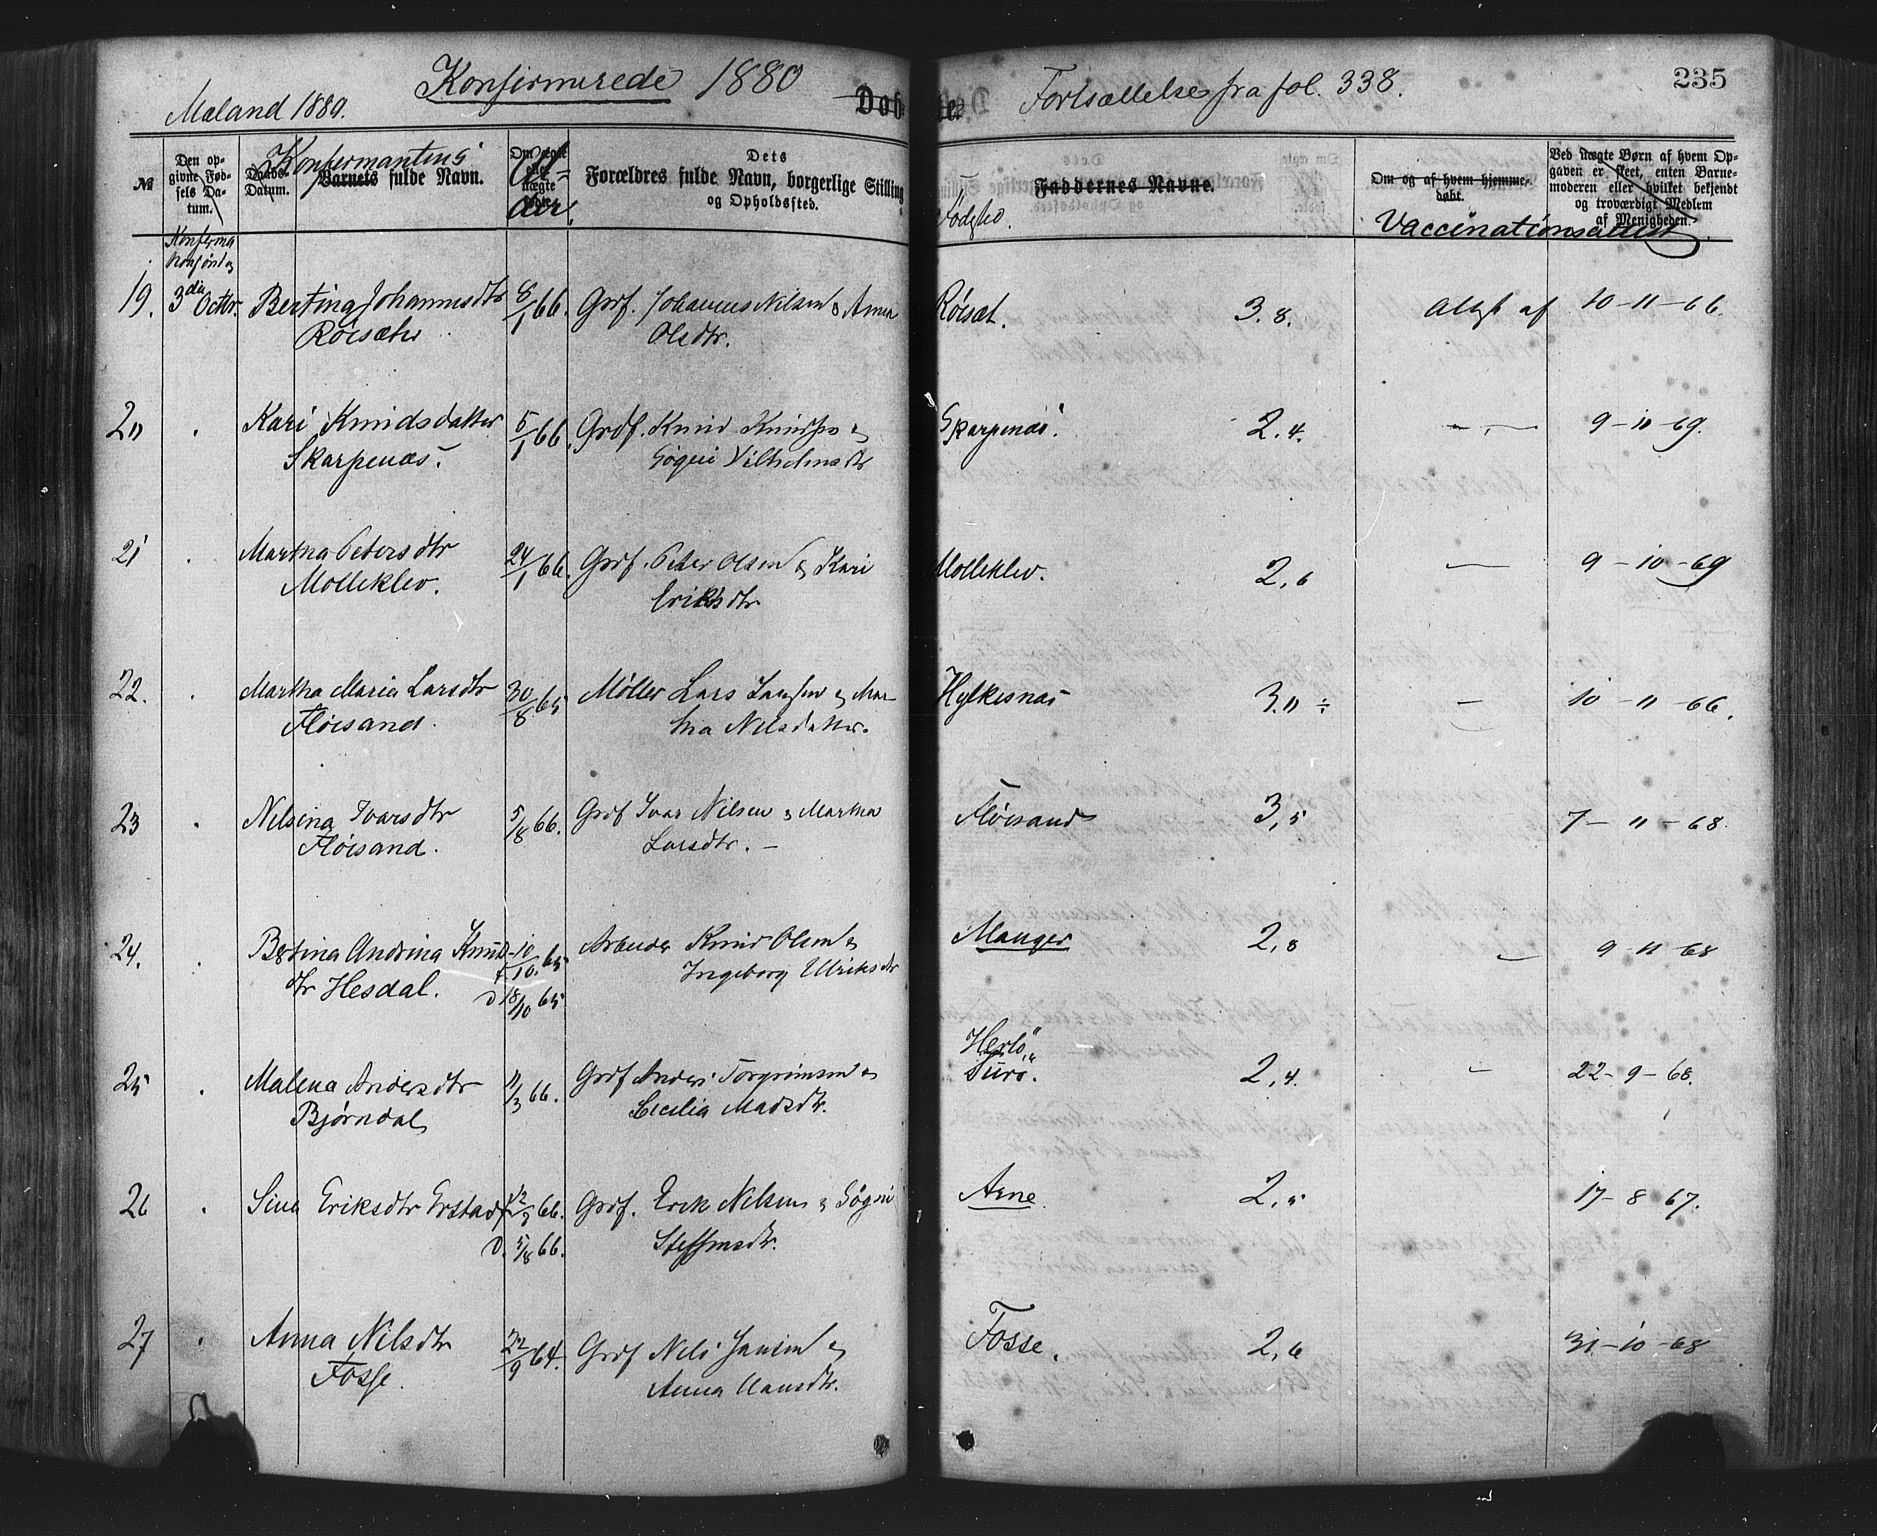 Konfirmerede 1880
Mæland 1880.
Fortsættelse fra fol. 338.
235
Døb
te.
№
Den op-
givne Fød-
sels Da-
tum.
Daabs-
Datum.
Konfermantens
Barnets fulde Navn.
Om ægte
eller
uægte
født.
Al-
der.
Dets
Forældres fulde Navn, borgerlige Stilling
og Opholdssted.
Fødested.
Faddernes Navne.
Om og af hvem hjemme-
døbt.
Ved uægte Børn af hvem Op-
gaven er skeet, enten Barne-
moderen eller hvilket bekjendt
og troværdigt Medlem
af Menigheden.
Vaccinationsattest
19. 3die Octbr. Bertina Johannesdtr 8/1 66. Grdf. Johannes Nilsen & Anna Røisæt. 3.8. Attest af 10-11-66.
Røisæter Olsdtr.
20 Kari Knudsdatter 5/1 66. Grdf. Knud Knudsen & Skarpenæs. 2.4. 9-10-69.
Skarpenæs. Gøgni Vilhelmsdtr
21 Martha Petersdtr 24/1 66. Grdf. Peter Olsen & Kari Molleklev. 2,6 9-10-69
Molleklev. Eriksdtr
22. Martha Maria Larsdtr 30/8 65 Møller Lars Jansen & Mar- Hylkesnæs 3.11 ÷ 10-11-66.
Fløisand. tha Nilsdatter.
23 Nilsina Ivarsdtr 5/8 66. Grdf Ivar Nilsen & Martha Fløisand 3,5 7-11-68.
Fløisand. Larsdtr.
24. Bertina Andrina Knuds- f. 10/10 65 Arbeider Knud Olsen & Manger 2,8 9-11-68
dtr Hesdal. D 18/10 65 Ingeborg Ulriksdtr
Herlø,
25 Malena Andersdtr 11/3 66. Grdf Anders Torgrimsen & Turø. 2,4. 22-9-68.
Bjørndal Cecilia Madsdtr.
26 Sina Eriksdtr Erstad f. 12/2 66. Grdf. Erik Nilsen & Gøgni Arne 2,5 17-8-67.
D. 5/8 66. Steffensdtr.
27 Anna Nilsdtr 22/9 64. Grdf Nils Jansen & Fosse. 2,6 31-10-68
Fosse. Anna Hansdtr.